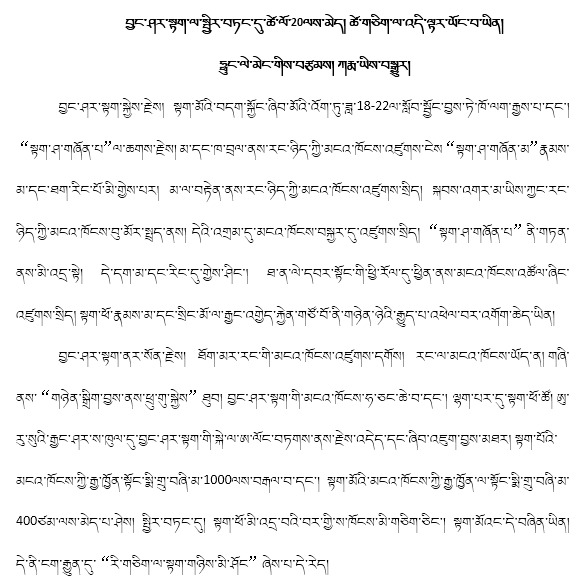 བྱང་ཤར་སྟག་ལ་སྤྱིར་བཏང་དུ་ཚེ་ལོ་20ལས་མེད། ཚེ་གཅིག་ལ་འདི་ལྟར་ཡོང་བ་ཡིན།
ཧྥུང་ལེ་མེང་གིས་བརྩམས། ཀརྨ་ཡིས་བསྒྱུར།
བྱང་ཤར་སྟག་སྐྱེས་རྗེས། སྟག་མོའི་བདག་སྐྱོང་ཞིབ་མོའི་འོག་ཏུ་ཟླ་18-22ལ་སློབ་སྦྱོང་བྱས་ཏེ་ཁོ་ལག་རྒྱས་པ་དང་།
“སྟག་ཤ་གཞོན་པ”ལ་ཆགས་རྗེས། མ་དང་ཁ་བྲལ་ནས་རང་ཉིད་ཀྱི་མངའ་ཁོངས་འཛུགས་ངེས “སྟག་ཤ་གཞོན་མ”རྣམས་
མ་དང་ཐག་རིང་པོ་མི་གྱེས་པར། མ་ལ་བརྟེན་ནས་རང་ཉིད་ཀྱི་མངའ་ཁོངས་འཛུགས་སྲིད། སྐབས་འགར་མ་ཡིས་ཀྱང་རང་
ཉིད་ཀྱི་མངའ་ཁོངས་བུ་མོར་སྤྲད་ནས། དེའི་འགྲམ་དུ་མངའ་ཁོངས་བསྐྱར་དུ་འཛུགས་སྲིད། “སྟག་ཤ་གཞོན་པ” ནི་གཏན་
ནས་མི་འདྲ་སྟེ། དེ་དག་མ་དང་རིང་དུ་གྱེས་ཤིང་། ཐ་ན་ལེ་དབར་སྟོང་གི་ཕྱི་རོལ་དུ་ཕྱིན་ནས་མངའ་ཁོངས་འཚོལ་ཞིང་
འཛུགས་སྲིད། སྟག་ཕོ་རྣམས་མ་དང་སྲིང་མོ་ལ་རྒྱང་འགྱེད་རྐྱེན་གཙོ་བོ་ནི་གཉེན་ཉེའི་རྒྱུད་པ་འཕེལ་བར་འགོག་ཆེད་ཡིན།
བྱང་ཤར་སྟག་ནར་སོན་རྗེས། ཐོག་མར་རང་གི་མངའ་ཁོངས་འཛུགས་དགོས། རང་ལ་མངའ་ཁོངས་ཡོད་ན། གཞི་
ནས་ “གཉེན་སྒྲིག་བྱས་ནས་ཕྲུ་གུ་སྐྱེས” ཐུབ། བྱང་ཤར་སྟག་གི་མངའ་ཁོངས་ཧ་ཅང་ཆེ་བ་དང་། ལྷག་པར་དུ་སྟག་ཕོ་ཚོ། ཨུ་
རུ་སུའི་རྒྱང་ཤར་ས་ཁུལ་དུ་བྱང་ཤར་སྟག་གི་སྐེ་ལ་ཨ་ལོང་བཏགས་ནས་རྗེས་འདེད་དང་ཞིབ་འཇུག་བྱས་མཐར། སྟག་པོའི་
མངའ་ཁོངས་ཀྱི་རྒྱ་ཁྱོན་སྟོང་སྨི་གྲུ་བཞི་མ་1000ལས་བརྒལ་བ་དང་། སྟག་མོའི་མངའ་ཁོངས་ཀྱི་རྒྱ་ཁྱོན་ལ་སྟོང་སྨི་གྲུ་བཞི་མ་
400ཙམ་ལས་མེད་པ་ཤེས། སྤྱིར་བཏང་དུ། སྟག་ཕོ་མི་འདྲ་བའི་བར་གྱི་ས་ཁོངས་མི་གཅིག་ཅིང་། སྟག་མོའང་དེ་བཞིན་ཡིན།
དེ་ནི་ངག་རྒྱུན་དུ་ “རི་གཅིག་ལ་སྟག་གཉིས་མི་ཤོང” ཞེས་པ་དེ་རེད།